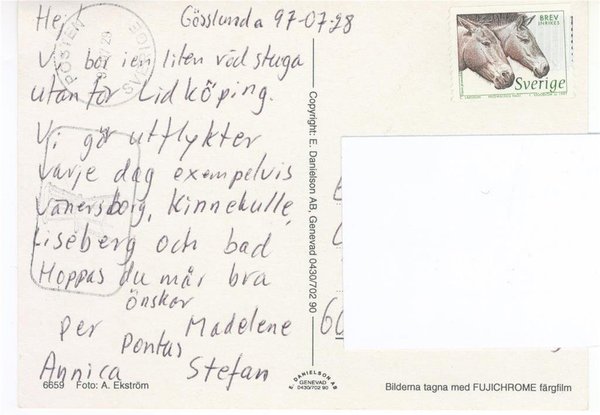 Hej! Gösslunda 97-07-28
Vi bor i en liten röd stuga
utan för Lidköping.
Vi gör utflykter
varje dag exempelvis
Vänersborg, Kinnekulle,
Liseberg och bad
Hoppas du mår bra
önskar
Per Madelene
Pontus
Annica Stefan
6659 Foto: A. Ekström
POSTEN
Copyright: E. Danielson AB, Genevad 0430/702 90
E. DANIELSON AB
GENEVAD
0430/702 90
BREV
INRIKES
Sverige
Bilderna tagna med FUJICHROME färgfilm